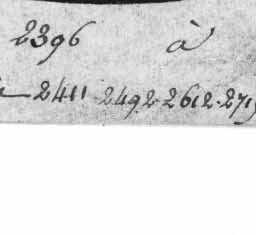 2396 à
2411 2492 2612 271